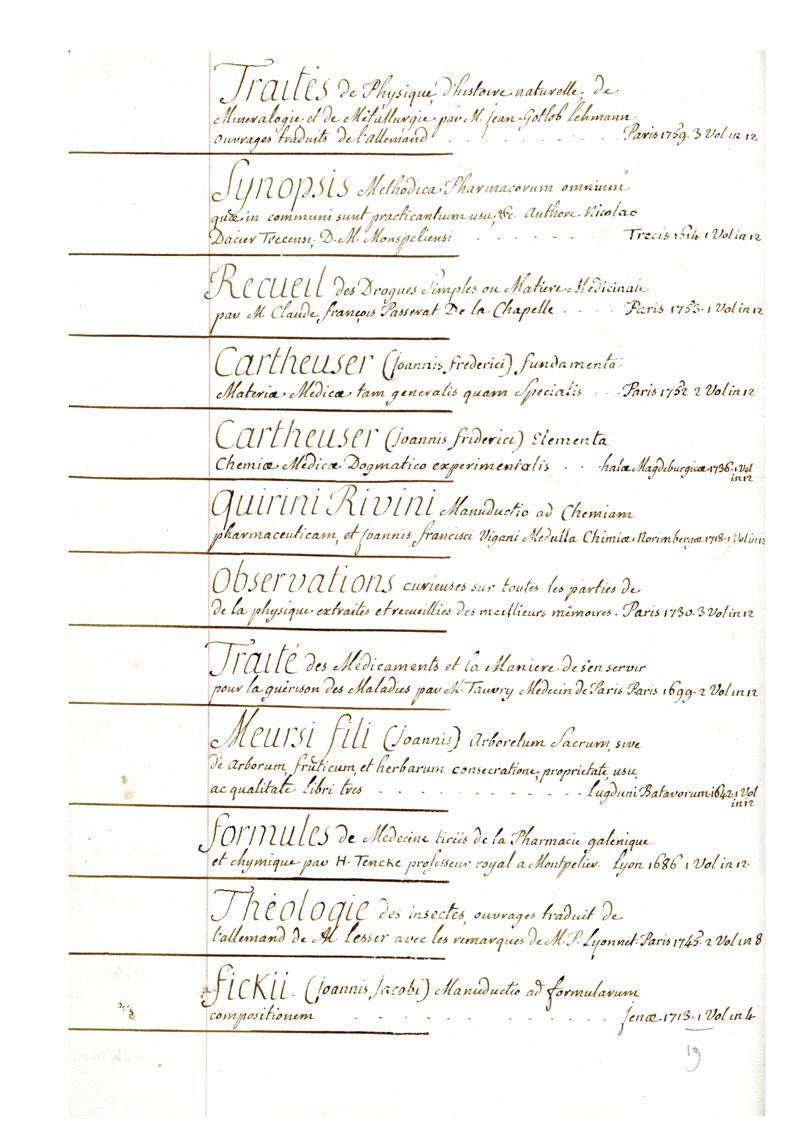 Traités de Physique, d'histoire naturelle, de
Mineralogie et de Métallurgie par M. Jean-Gotlob Lehmann
ouvrages traduits de l'allemand . . . . . . . . Paris 1759. 3 Vol in 12
Synopsis Methodica Pharmacorum omnium
quæ in communi sunt practicantium usu, &c. Authore Nicolao
Dacier Trecensi, D. M. Monspeliensi . . . . . . Trecis 1614 1 Vol in 12
Recueil des Drogues Simples ou Matiere Medicinale
par M. Claude françois Passerat De la Chapelle . . . . Paris 1753. 1 Vol in 12
Cartheuser (joannis frederici) fundamenta
Materiæ Médicæ tam generalis quam Specialis . . . Paris 1752 2 Vol in 12
Cartheuser (joannis friderici) Elementa
Chemiæ Médicæ Dogmatico experimentalis . . halæ Magdeburgicæ 1736. 1 Vol
in 12
Quirini Rivini Manuductio ad Chemiam
pharmaceuticam, et joannis francisci Vigani Medulla Chimiæ Norimbergæ 1718. 1 Vol in 12
Observations curieuses sur toutes les parties de
de la physique extraites et recueillies des meillieurs mémoires. Paris 1730. 3 Vol in 12
Traité des Médicaments et la Maniere de s'en servir
pour la guérison des Maladies par M. Tauvry Medecin de Paris Paris 1699. 2 Vol in 12
Meursi fili (joannis) Arboretum Sacrum, sive
de Arborum, fruticum, et herbarum consecratione, proprietate, usu,
ac qualitate Libri tres . . . . . . . . . . Lugduni Batavorum 1642. 1 Vol
in 12
formules de Médecine tirées de la Pharmacie galenique
et chymique par H. Tencke professeur royal a Montpelier. Lyon 1686 1 Vol in 12.
Théologie des insectes, ouvrages traduit de
l'allemand de M Lesser avec les remarques de M. P. Lyonnet. Paris 1745. 2 Vol in 8
fickii. (joannis jacobi) Manuductio ad formularum
compositionem . . . . . . . . . . jenæ 1713. 1 Vol in 4
19